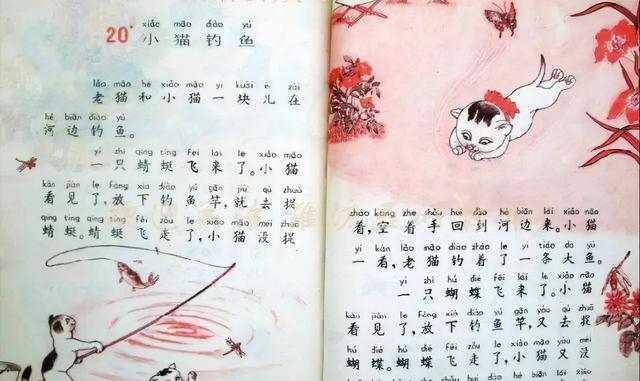 xiǎo māo diào yú
20 小猫钓鱼
lǎo māo hé xiǎo māo yí kuàir zài
老猫和小猫一块儿在
hé biān diào yú
河边钓鱼。
yì zhī qīng tíng fēi lái le xiǎo māo
一只蜻蜓飞来了。小猫
kàn jiàn le fàng xià diào yú gān jiù qù zhuō
看见了,放下钓鱼竿,就去捉
qīng tíng qīng tíng fēi zǒu le xiǎo māo méi zhuō
蜻蜓。蜻蜓飞走了,小猫没捉
zháo kōng zhe shǒu huí dào hé biān lái xiǎo māo
着,空着手回到河边来。小猫
yí kàn lǎo māo diào zháo le yì tiáo dà yú
一看,老猫钓着了一条大鱼。
yì zhī hú dié fēi lái le xiǎo māo
一只蝴蝶飞来了。小猫
kàn jiàn le fàng xià diào yú gān yòu qù zhuō
看见了,放下钓鱼竿,又去捉
hú dié hú dié fēi zǒu le xiǎo māo yòu méi
蝴蝶。蝴蝶飞走了,小猫又没